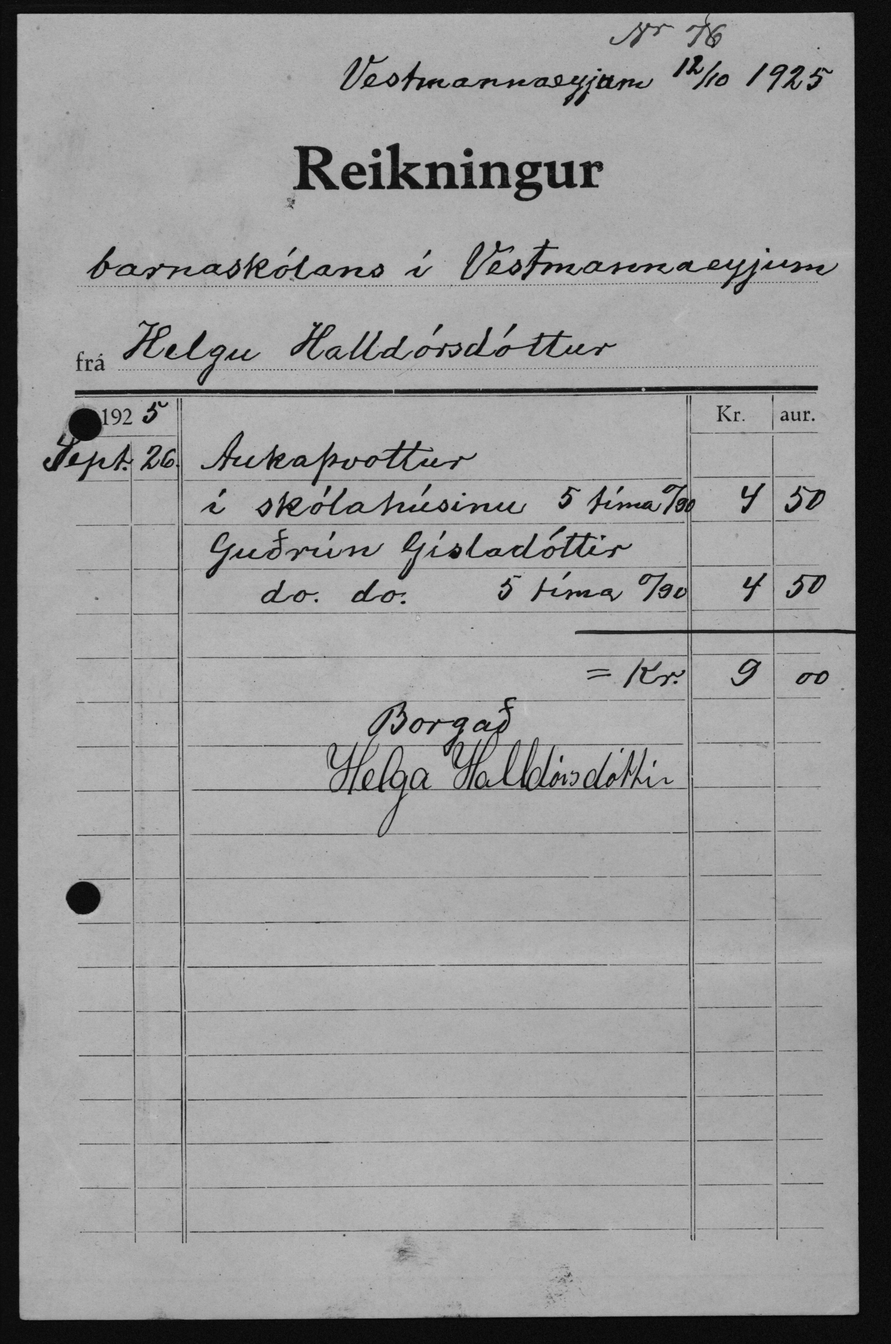 Nr 76
Vestmannaeyjum 12/10 1925
Reikningur
barnaskólans í Vestmannaeyjum
frá Helgu Halldórsdóttur
1925 Kr. aur.
Sept. 26. Aukaþvottur
í skólahúsinu 5 tíma 0/90 4 50
Guðrún Gísladóttir
do. do. 5 tíma 0/90 4 50
= Kr. 9 00
Borgað
Helga Halldórsdóttir